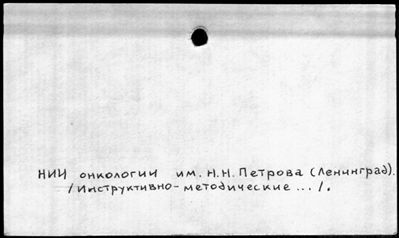 НИИ онкологии им. Н.Н. Петрова (Ленинград).
/Инструктивно-методические ... /.